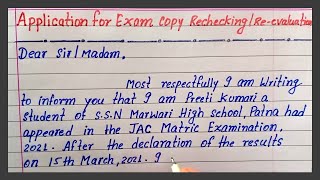 Application for Exam Copy Rechecking/Re-evaluation
Dear Sir/Madam,
Most respectfully I am Writing
to inform you that I am Preeti Kumari a
Student of S.S.N Marwari High school, Patna had
appeared in the JAC Matric Examination,
2021. After the declaration of the results
on 15th March, 2021. I